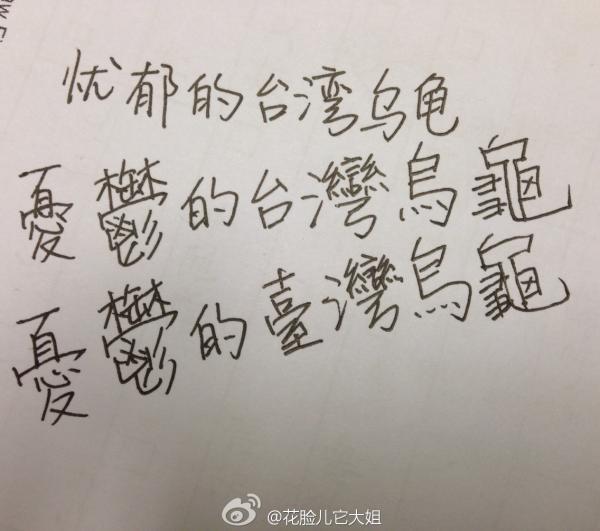 忧郁的台湾乌龟
憂鬱的台灣烏龜
憂鬱的臺灣烏龜
@花脸儿它大姐